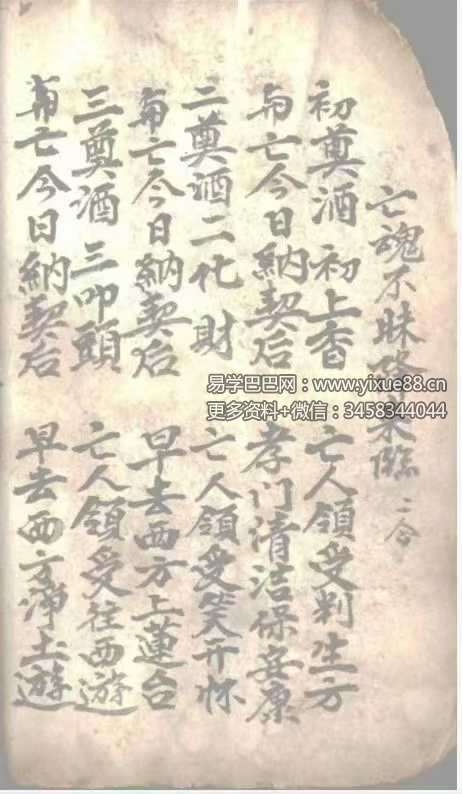 亡魂不昧降来臨 二合
初奠酒 初上香 亡人領受判生方
亡今日納契后 孝门清洁保安康
二奠酒 二化财 亡人領受笑开怀
亡今日納契后 早去西方上蓮台
三奠酒 三叩頭 亡人領受往西遊
亡今日納契后 早去西方淨土遊
易学巴巴网：www.yixue88.cn
更多资料+微信：3458344044